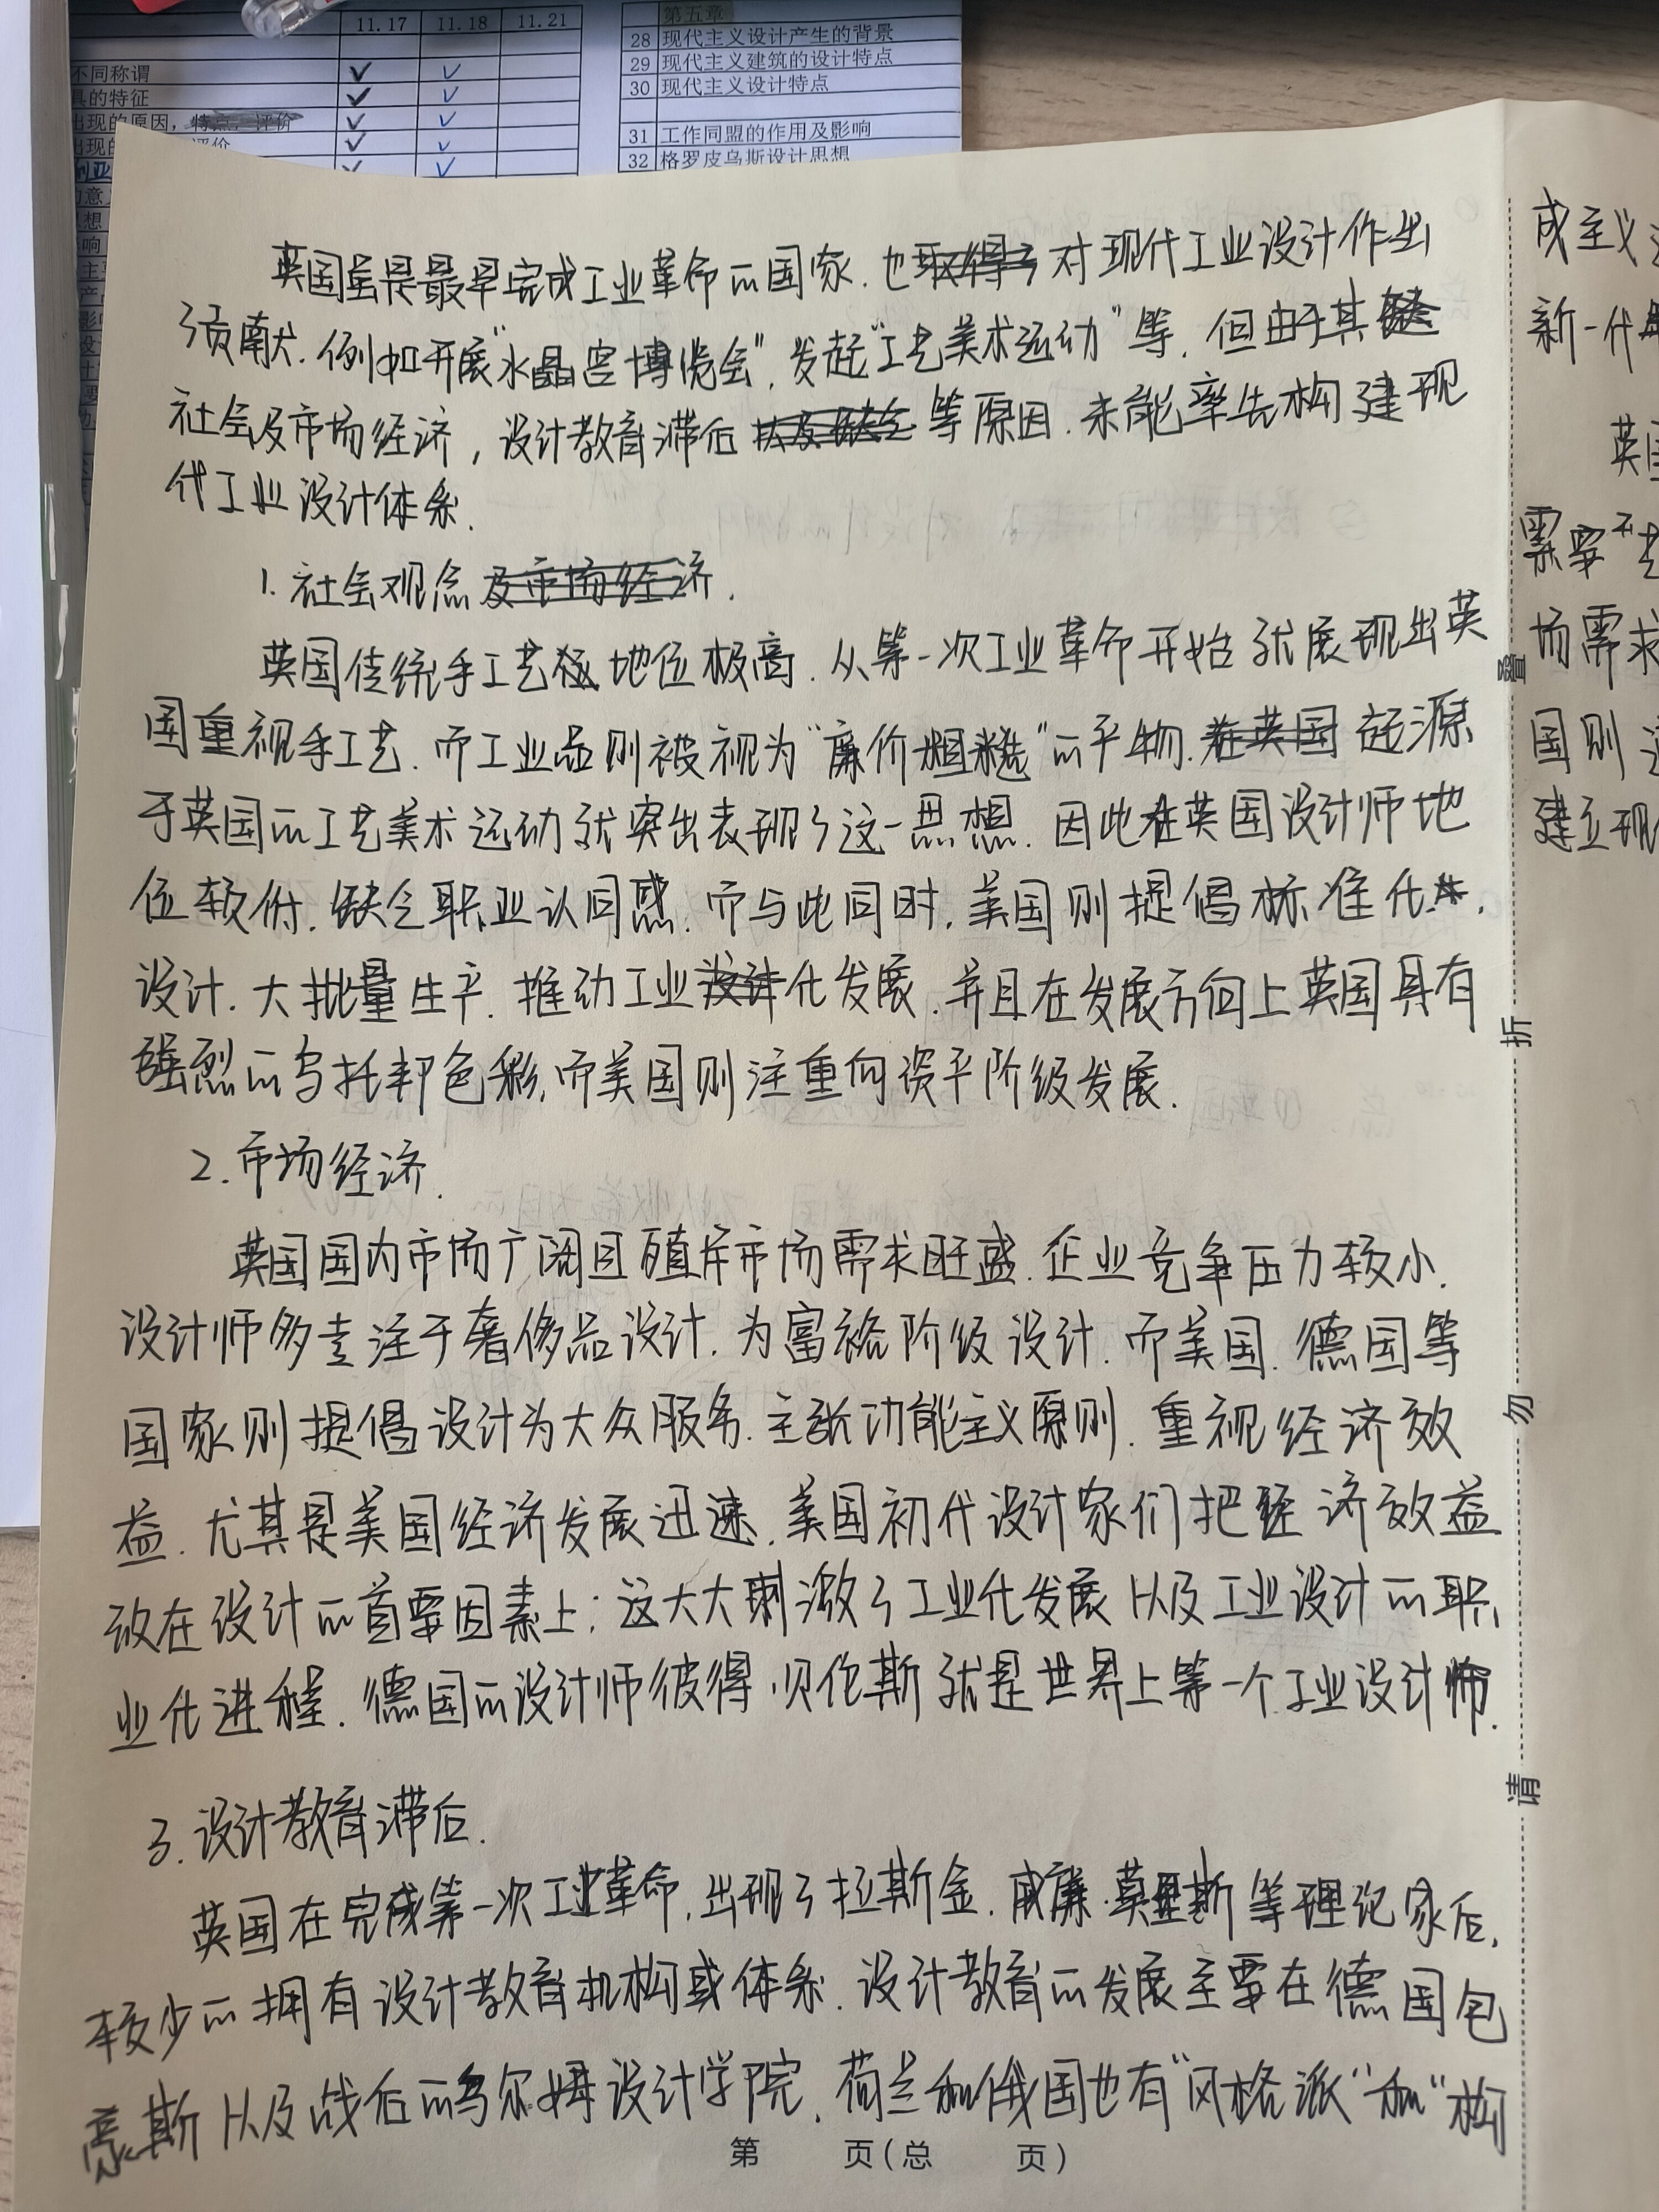 11.17 11.18 11.21
不同称谓
具的特征
出现的原因，特点，评价
出现的 评价
第五章
28 现代主义设计产生的背景
29 现代主义建筑的设计特点
30 现代主义设计特点
31 工作同盟的作用及影响
32 格罗皮乌斯设计思想
英国虽是最早完成工业革命的国家.也取得了对现代工业设计作出
了贡献.例如开展"水晶宫博览会",发起"工艺美术运动"等.但由于其缺
社会及市场经济,设计教育滞后以及缺乏等原因.未能率先构建现
代工业设计体系.
1.社会观念及市场经济.
英国传统手工艺极地位极高.从第一次工业革命开始就展现出英
国重视手工艺.而工业品则被视为"廉价粗糙"的产物.在英国起源
于英国的工艺美术运动就突出表现了这一思想.因此在英国设计师地
位较低.缺乏职业认同感.而与此同时,美国则提倡标准化
设计.大批量生产.推动工业设计化发展.并且在发展方向上英国具有
强烈的乌托邦色彩,而美国则注重向资产阶级发展.
2.市场经济.
英国国内市场广阔且殖民市场需求旺盛.企业竞争压力较小.
设计师多专注于奢侈品设计.为富裕阶级设计.而美国.德国等
国家则提倡设计为大众服务.主张功能主义原则.重视经济效
益.尤其是美国经济发展迅速.美国初代设计家们把经济效益
放在设计的首要因素上;这大大刺激了工业化发展以及工业设计的职
业化进程.德国的设计师彼得·贝伦斯就是世界上第一个工业设计师.
3.设计教育滞后.
英国在完成第一次工业革命,出现了拉斯金.威廉·莫里斯等理论家后,
较少的拥有设计教育机构或体系.设计教育的发展主要在德国包
豪斯以及战后的乌尔姆设计学院.荷兰和俄国也有"风格派"和"构
第 页(总 页)
叠
折
勿
请
成主义
新一代
英国
需要
场需求
国则
建立现